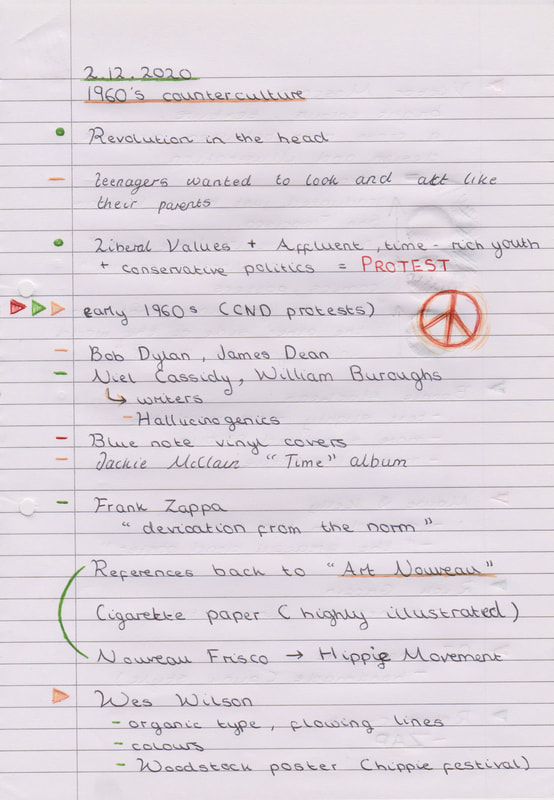 2.12.2020
1960's counterculture
Revolution in the head
Teenagers wanted to look and act like
their parents
Liberal Values + Affluent, time-rich youth
+ conservative politics = PROTEST
early 1960s (CND protests)
Bob Dylan, James Dean
Niel Cassidy, William Buroughs
↳ writers
- Hallucinogenics
Blue note vinyl covers
Jackie McClain "Time" album
Frank Zappa
"deviation from the norm"
References back to "Art Nouveau"
Cigarette paper (highly illustrated)
Nouveau Frisco → Hippie Movement
Wes Wilson
- organic type, flowing lines
- colours
- Woodstock poster (hippie festival)